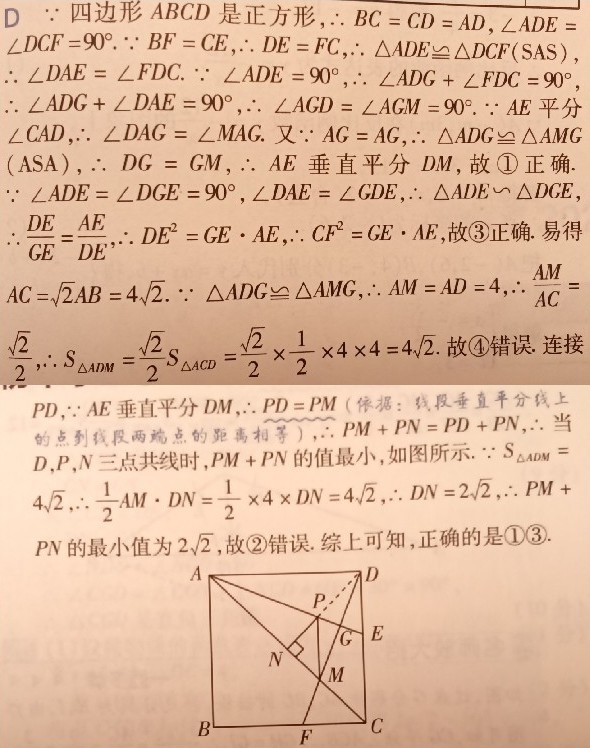 D ∵ 四边形 ABCD 是正方形,∴ BC = CD = AD, ∠ADE =
∠DCF = 90°. ∵ BF = CE,∴ DE = FC,∴ △ADE≌△DCF(SAS),
∴ ∠DAE = ∠FDC. ∵ ∠ADE = 90°,∴ ∠ADG + ∠FDC = 90°,
∴ ∠ADG + ∠DAE = 90°,∴ ∠AGD = ∠AGM = 90°. ∵ AE 平分
∠CAD,∴ ∠DAG = ∠MAG. 又∵ AG = AG,∴ △ADG≌△AMG
(ASA),∴ DG = GM,∴ AE 垂直平分 DM,故①正确.
∵ ∠ADE = ∠DGE = 90°,∠DAE = ∠GDE,∴ △ADE∽△DGE,
∴ DE/GE = AE/DE,∴ DE² = GE · AE,∴ CF² = GE · AE,故③正确. 易得
AC = √2AB = 4√2. ∵ △ADG≌△AMG,∴ AM = AD = 4,∴ AM/AC =
√2/2,∴ S△ADM = √2/2 S△ACD = √2/2 × 1/2 × 4 × 4 = 4√2. 故④错误. 连接
PD,∵ AE 垂直平分 DM,∴ PD = PM (依据：线段垂直平分线上
的点到线段两端点的距离相等),∴ PM + PN = PD + PN,∴ 当
D,P,N 三点共线时,PM + PN 的值最小,如图所示. ∵ S△ADM =
4√2,∴ 1/2 AM · DN = 1/2 × 4 × DN = 4√2,∴ DN = 2√2,∴ PM +
PN 的最小值为 2√2,故②错误. 综上可知,正确的是①③.
A D
P
G E
N
M
B F C